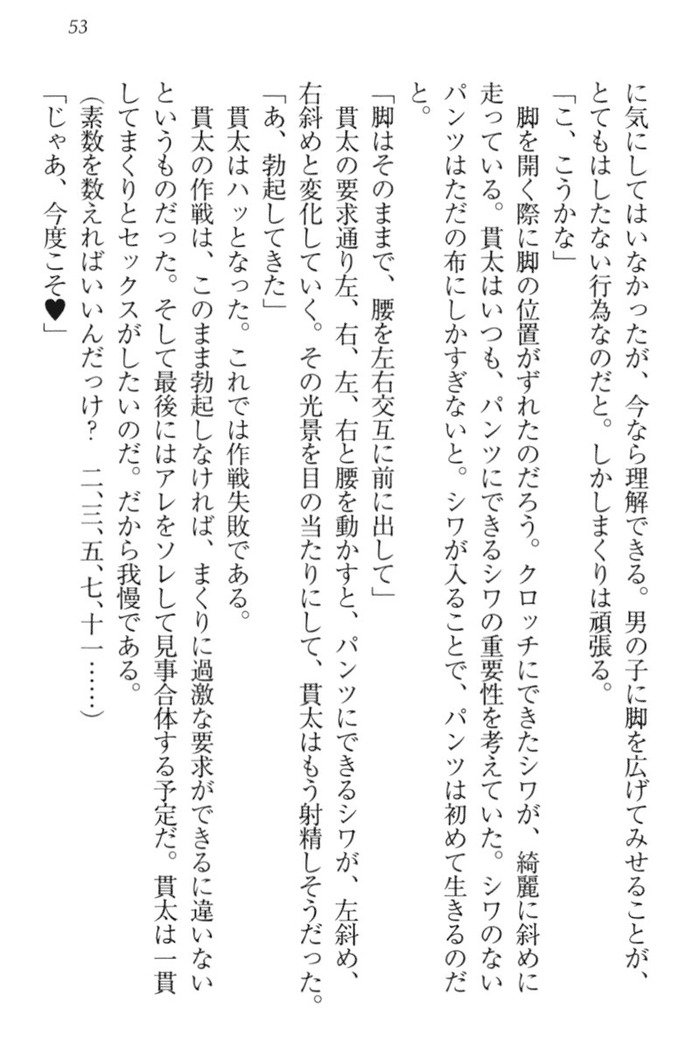 53
に気にしてはいなかったが、今なら理解できる。男の子に脚を広げてみせることが、
とてもはしたない行為なのだと。しかしまくりは頑張る。
「こ、こうかな」
　脚を開く際に脚の位置がずれたのだろう。クロッチにできたシワが、綺麗に斜めに
走っている。貫太はいつも、パンツにできるシワの重要性を考えていた。シワのない
パンツはただの布にしかすぎないと。シワが入ることで、パンツは初めて生きるのだ
と。
「脚はそのままで、腰を左右交互に前に出して」
　貫太の要求通り左、右、左、右と腰を動かすと、パンツにできるシワが、左斜め、
右斜めと変化していく。その光景を目の当たりにして、貫太はもう射精しそうだった。
「あ、勃起してきた」
　貫太はハッとなった。これでは作戦失敗である。
　貫太の作戦は、このまま勃起しなければ、まくりに過激な要求ができるに違いない
というものだった。そして最後にはアレをソレして見事合体する予定だ。貫太は一貫
してまくりとセックスがしたいのだ。だから我慢である。
（素数を数えればいいんだっけ？　二、三、五、七、十一……）
「じゃあ、今度こそ♥」